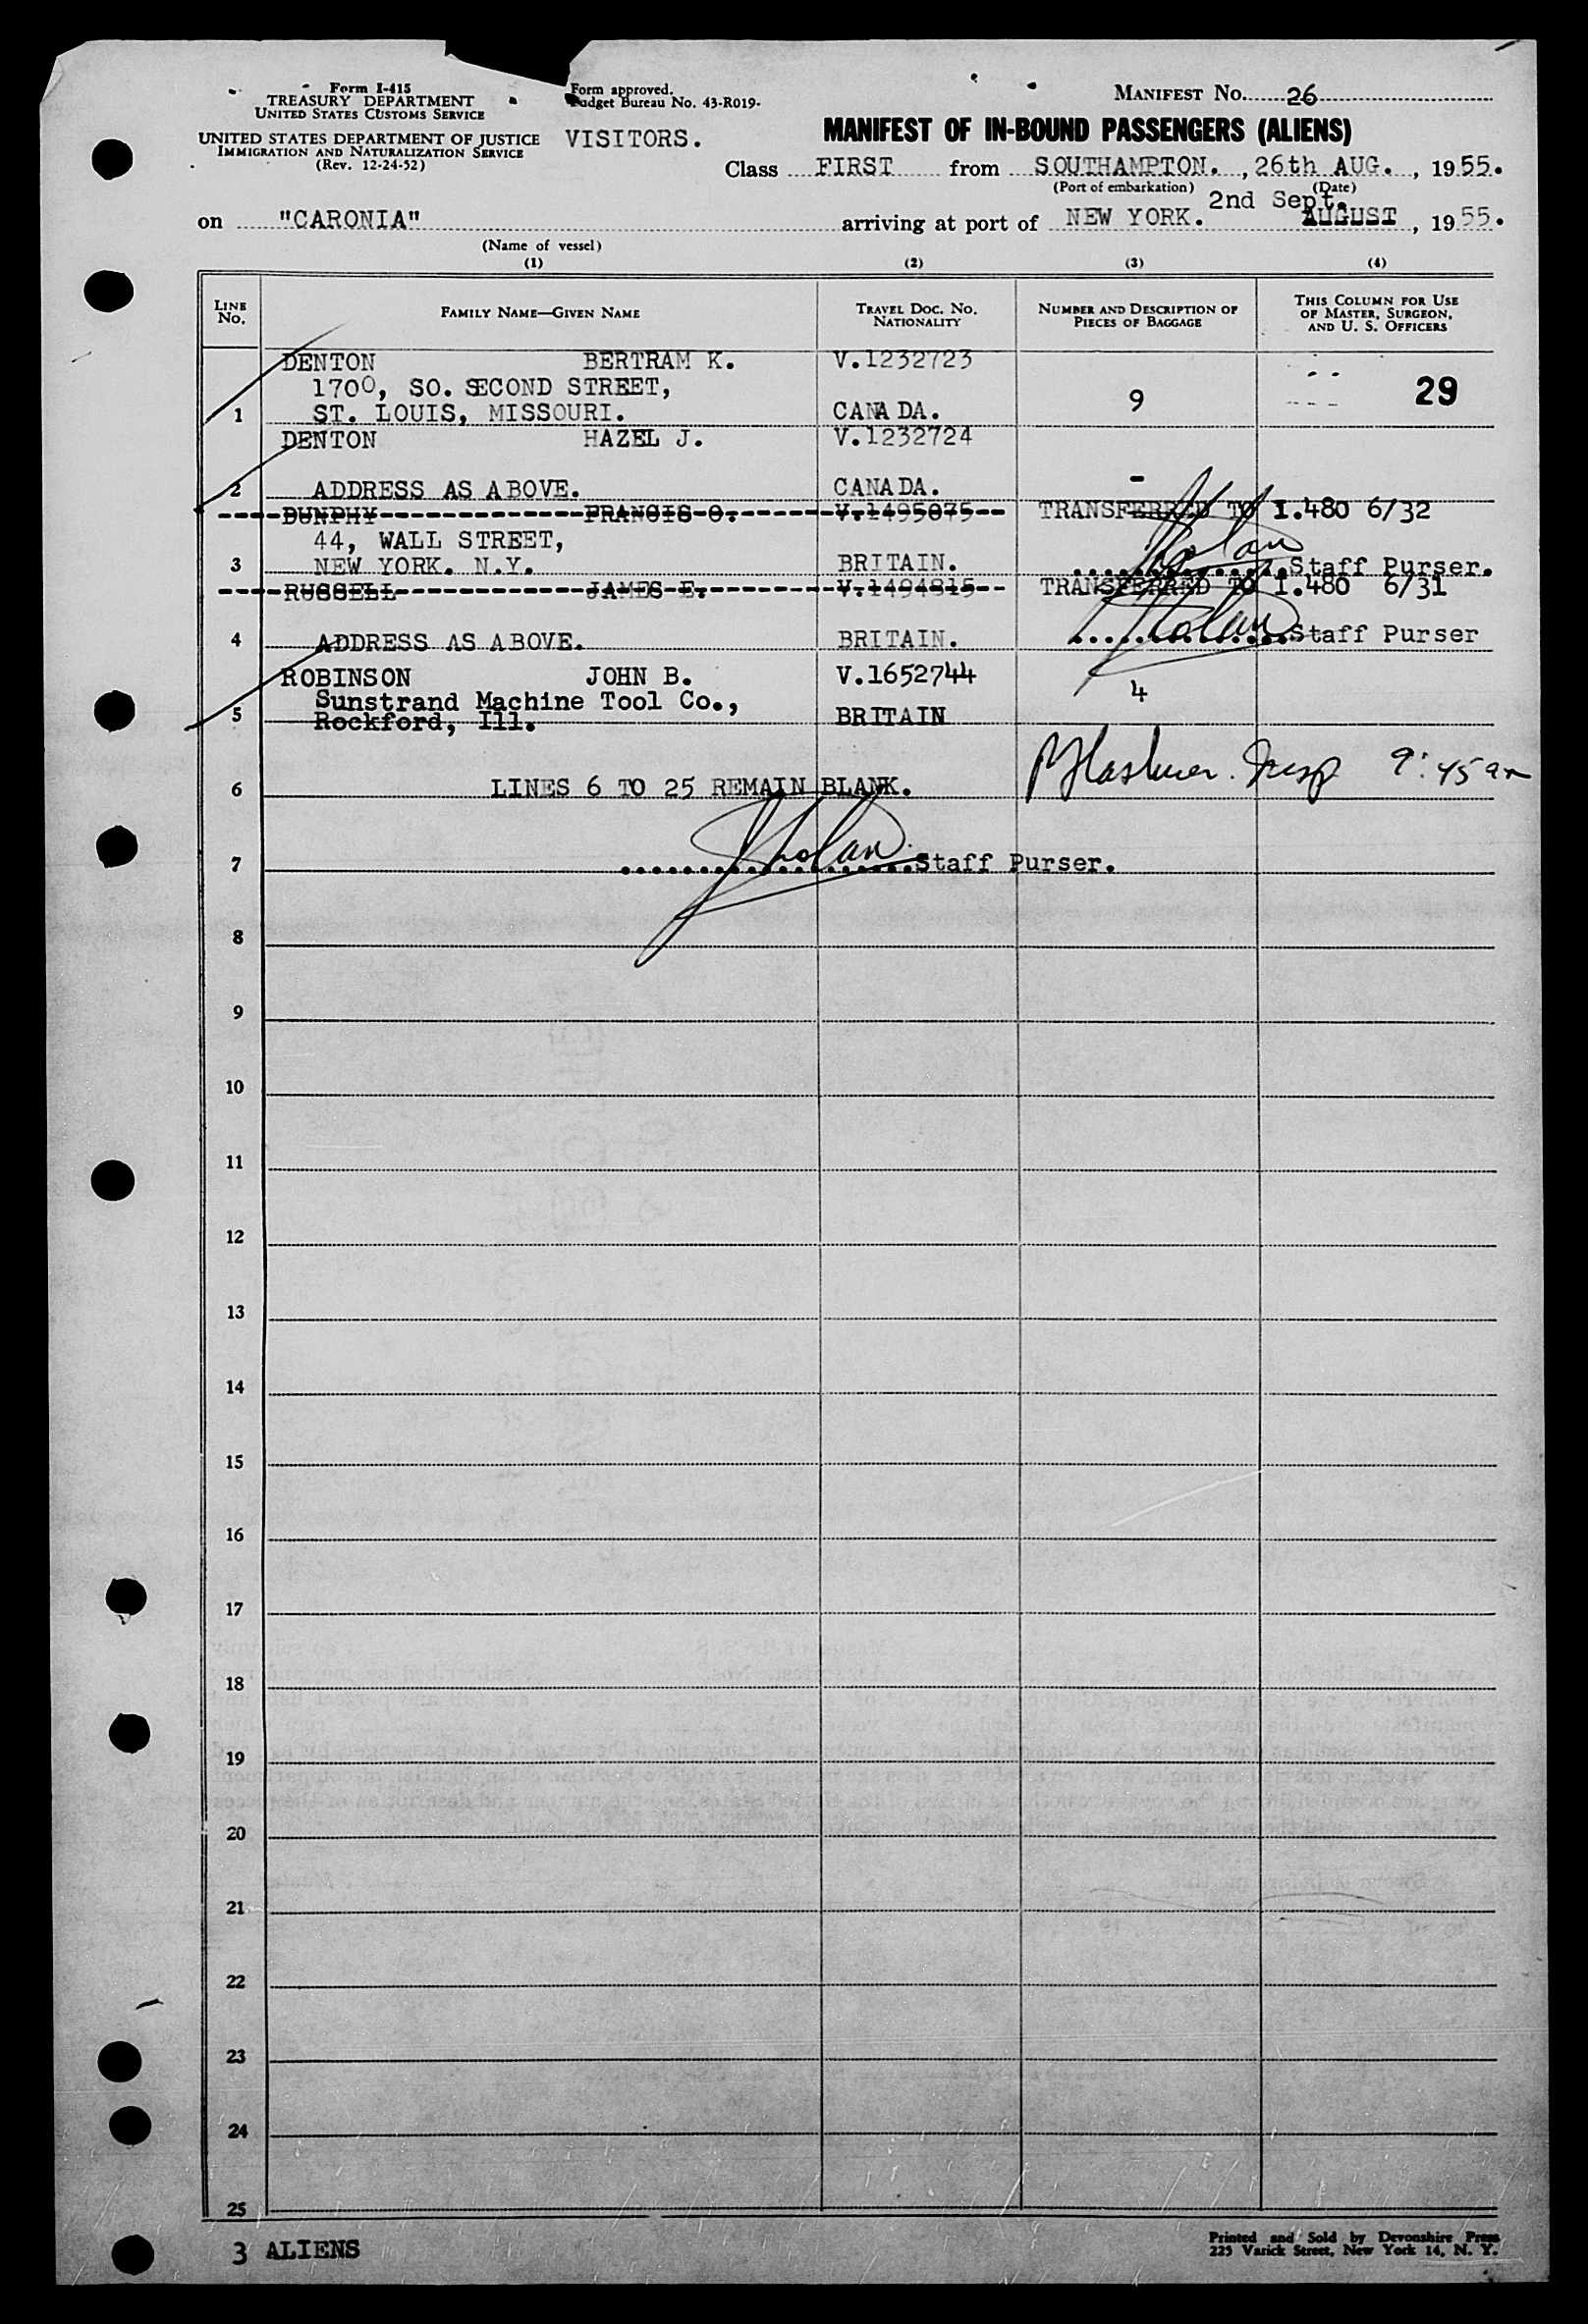 Form I-415
TREASURY DEPARTMENT
UNITED STATES CUSTOMS SERVICE
UNITED STATES DEPARTMENT OF JUSTICE
IMMIGRATION AND NATURALIZATION SERVICE
(Rev. 12-24-52)
Form approved.
Budget Bureau No. 43-R019-
VISITORS.
MANIFEST NO. 26
MANIFEST OF IN-BOUND PASSENGERS (ALIENS)
Class FIRST from SOUTHAMPTON., 26th AUG., 1955.
(Port of embarkation) (Date)
2nd Sept.
on "CARONIA" arriving at port of NEW YORK. AUGUST, 1955.
(Name of vessel)
(1) (2) (3) (4)
LINE No. FAMILY NAME—GIVEN NAME TRAVEL DOC. NO. NATIONALITY NUMBER AND DESCRIPTION OF PIECES OF BAGGAGE THIS COLUMN FOR USE OF MASTER, SURGEON, AND U. S. OFFICERS
DENTON BERTRAM K. V.1232723
1700, SO. SECOND STREET,
1 ST. LOUIS, MISSOURI. CANADA. 9 29
DENTON HAZEL J. V.1232724
2 ADDRESS AS ABOVE. CANADA. -
DUNPHY FRANCIS O. V.1495075 TRANSFERRED TO I.480 6/32
44, WALL STREET,
3 NEW YORK. N.Y. BRITAIN. Staff Purser.
RUSSELL JAMES E. V.1494815 TRANSFERRED TO I.480 6/31
4 ADDRESS AS ABOVE. BRITAIN. Staff Purser
ROBINSON JOHN B. V.1652744
Sunstrand Machine Tool Co., 4
5 Rockford, Ill. BRITAIN
Insp 9:45 am
6 LINES 6 TO 25 REMAIN BLANK.
7 Staff Purser.
8
9
10
11
12
13
14
15
16
17
18
19
20
21
22
23
24
25
3 ALIENS
Printed and Sold by Devonshire Press
225 Varick Street, New York 14, N. Y.